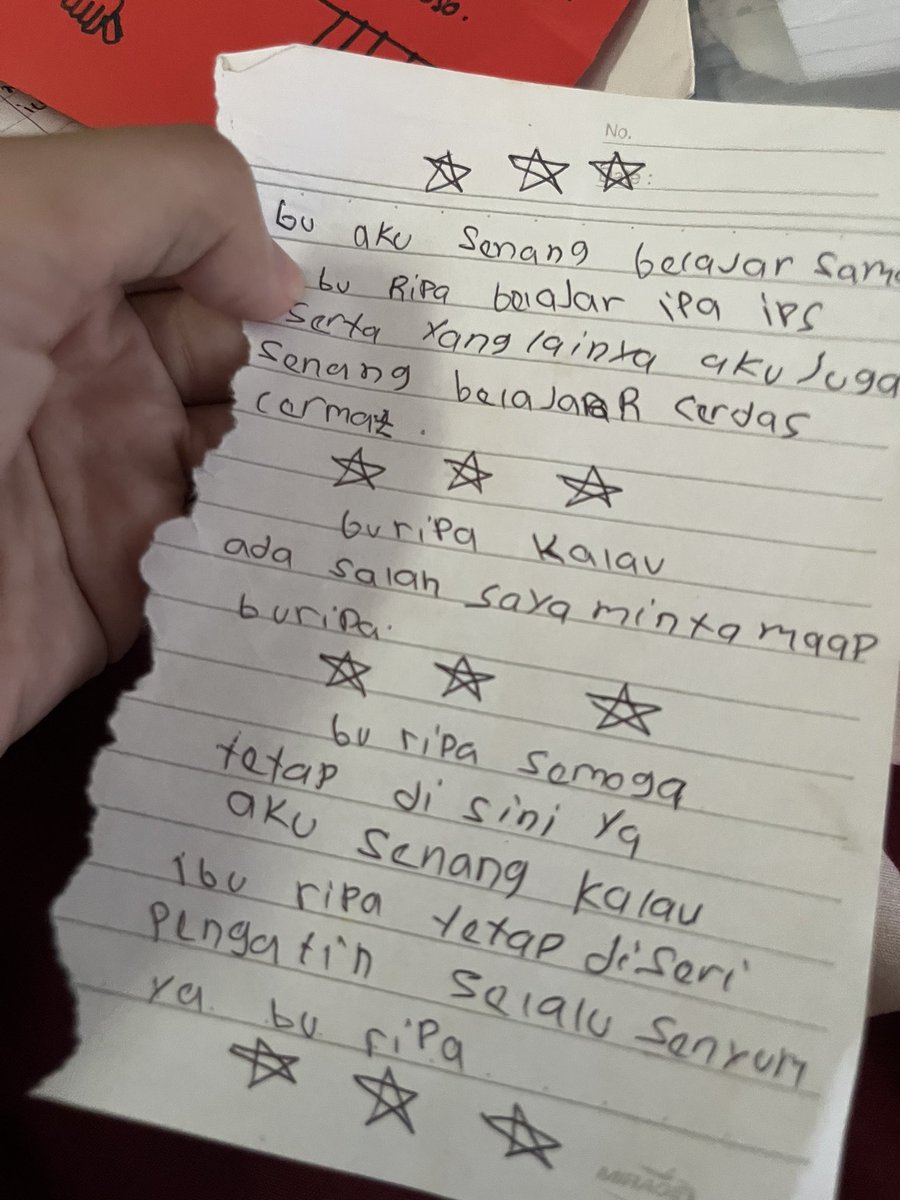 No.
bu aku senang belajar sama
bu Ripa belajar ipa ips
serta yang lainya aku juga
senang belajaRR cerdas
cermat.
buripa kalau
ada salah saya minta maap
buripa.
bu ripa semoga
tetap di sini ya
aku senang kalau
ibu ripa tetap diseri
Pengatin selalu senyum
ya bu riPa